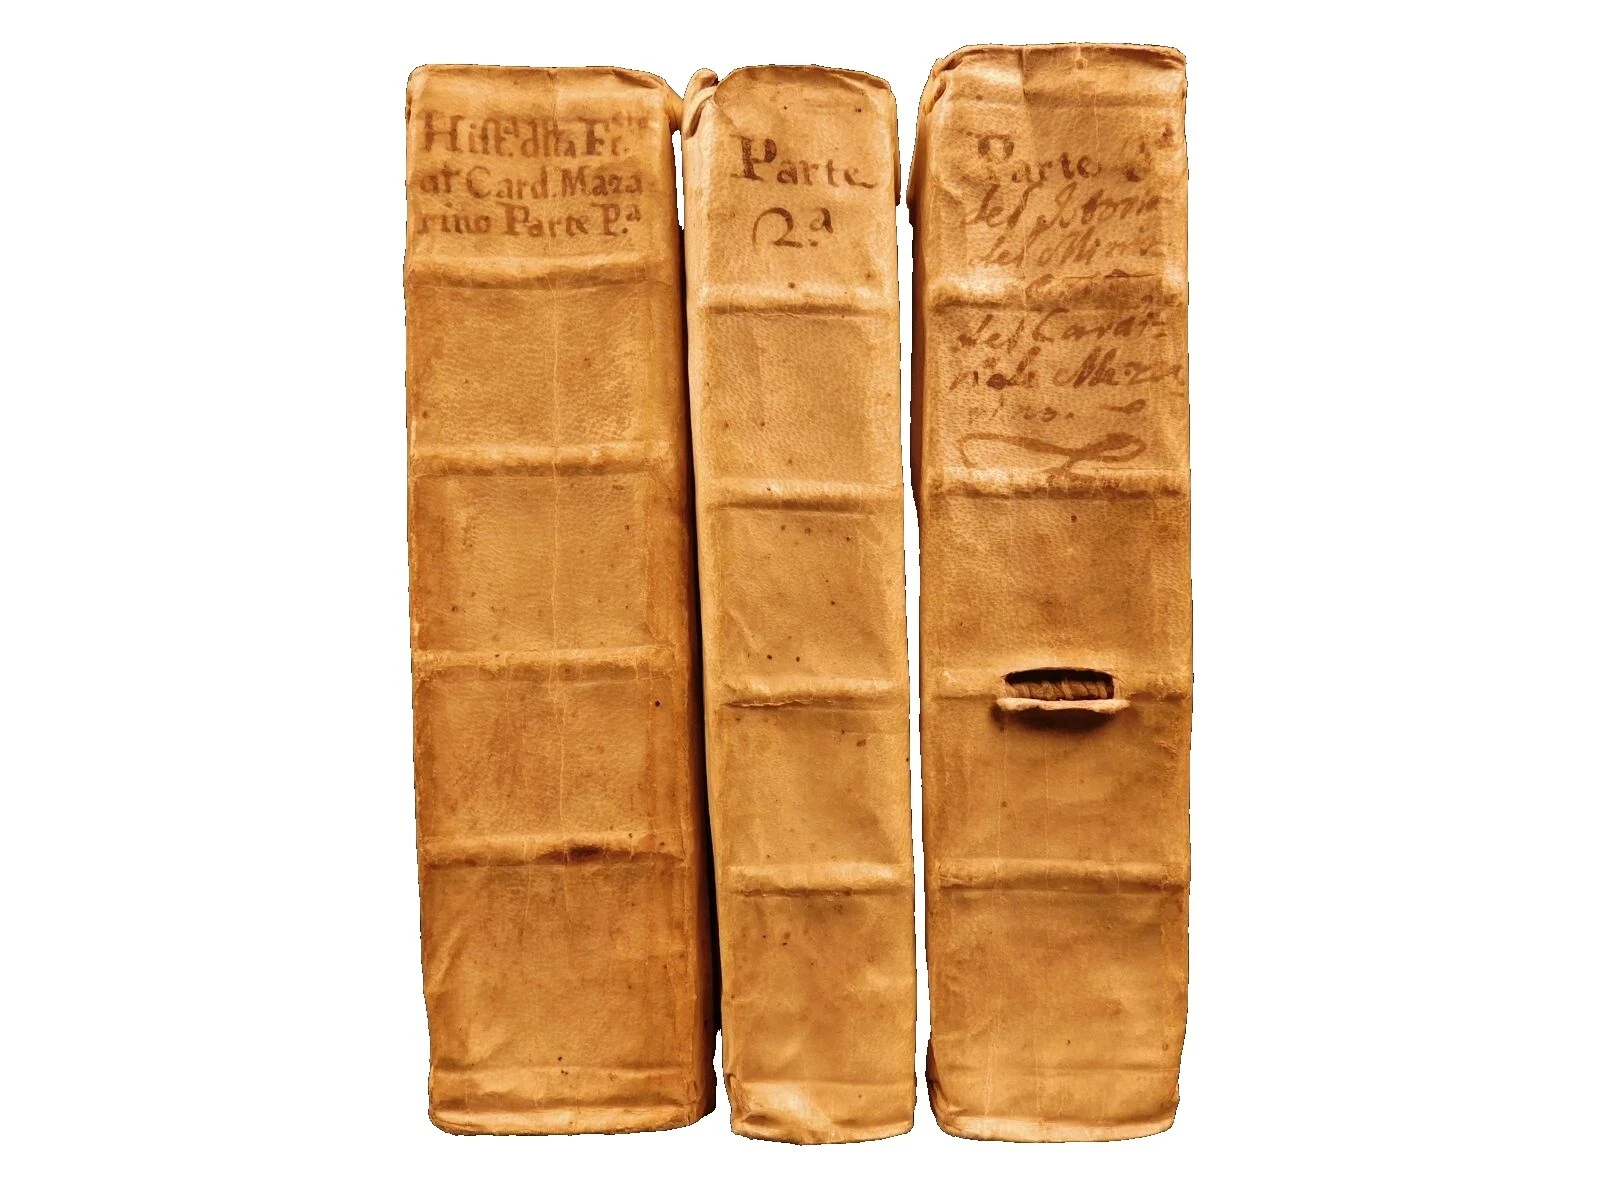 Hist.a della Fr.
Card. Maza
rino Parte P.a
Parte
2.a
Parte 3a
del Istoria
del Minis
del Cardi-
nale Maza
rino.